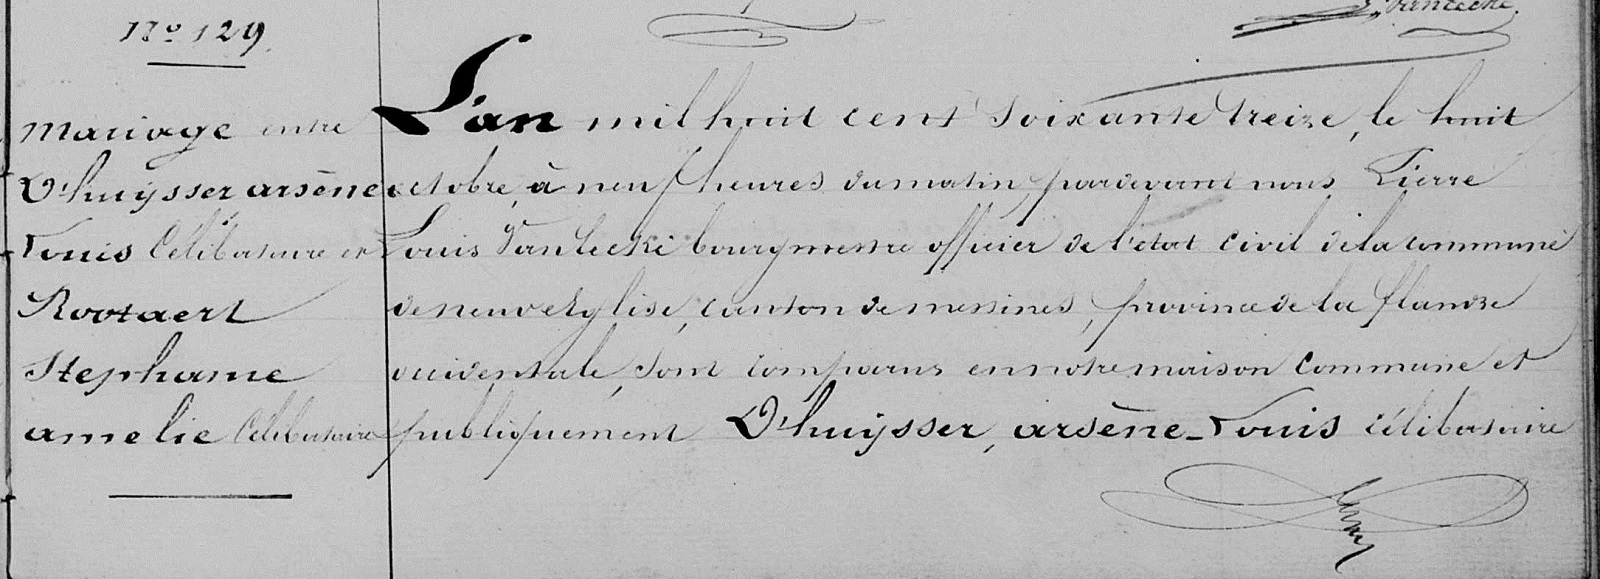 Vantecke.
No 129.
Mariage entre
D'huÿsser arsène
Louis Célibataire et
Rootaert
Stephanie
amelie Célibataire
L'an mil huit cent soixante treize, le huit
octobre, à neuf heures du matin, pardevant nous Pierre
Louis Vantecke bourgmestre officier de l'état civil de la commune
de neuve Eglise, canton de messines, province de la flandre
occidentale, sont comparus en notre maison commune et
publiquement D'huÿsser, arsène-Louis célibataire